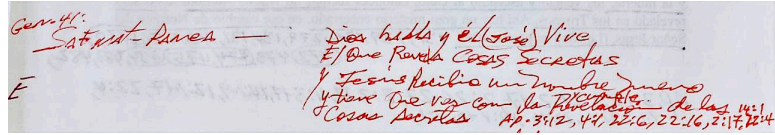 Gen-41:
Safnat-Panea — Dios habla y él (José) Vive
El Que Revela Cosas Secretas
Y Jesús Recibio un nombre Nuevo
y cumple.
y tiene Que ver con la Revelacion de las 14:1
Cosas Secretas Ap. 3:12, 4:1, 22:6, 22:16, 2:17, 22:4
E